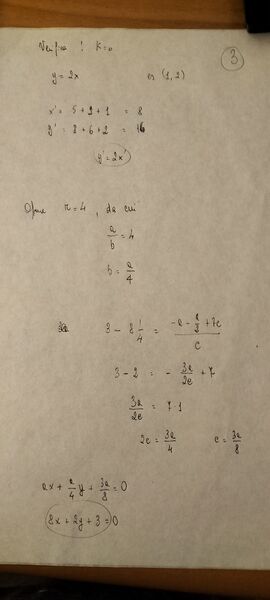 Verifica! K=0
3
y = 2x es (1, 2)
x' = 5 + 2 + 1 = 8
y' = 8 + 6 + 2 = 16
y' = 2x'
r = 4, da cui
a/b = 4
b = a/4
3 - 8 1/4 = (-a - + 7c)/c
3 - 2 = - 3a/2c + 7
3a/2c = 7-1
2c = 3a/4 c = 3a/8
ax + a/4 y + 3a/8 = 0
8x + 2y + 3 = 0